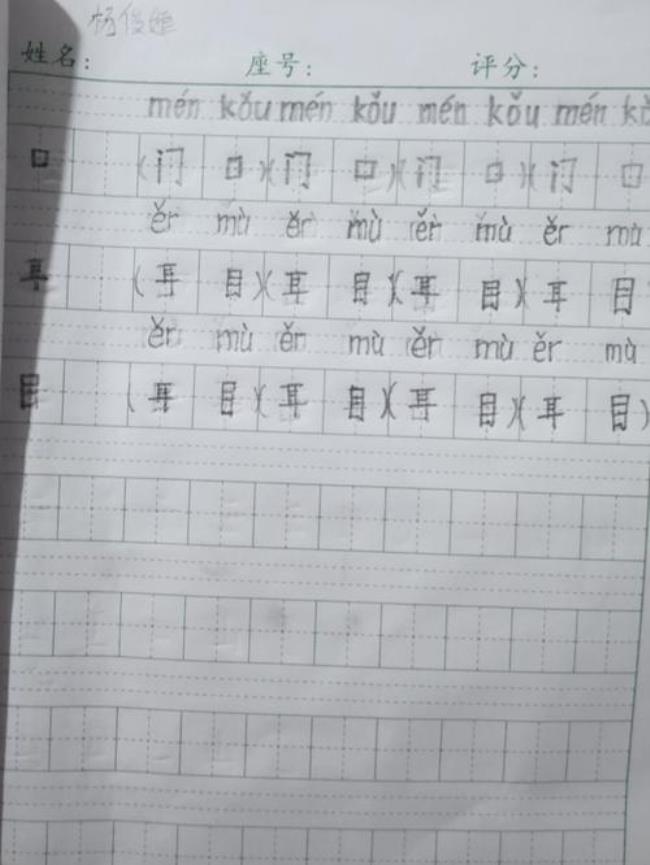 杨俊雄
姓名： 座号： 评分：
mén kǒu mén kǒu mén kǒu mén kǒ
口 （门 口）（门 口）（门 口）（门 口
ěr mù ěr mù ěr mù ěr mù
耳 （耳 目）（耳 目）（耳 目）（耳 目
ěr mù ěr mù ěr mù ěr mù
目 （耳 目）（耳 目）（耳 目）（耳 目）